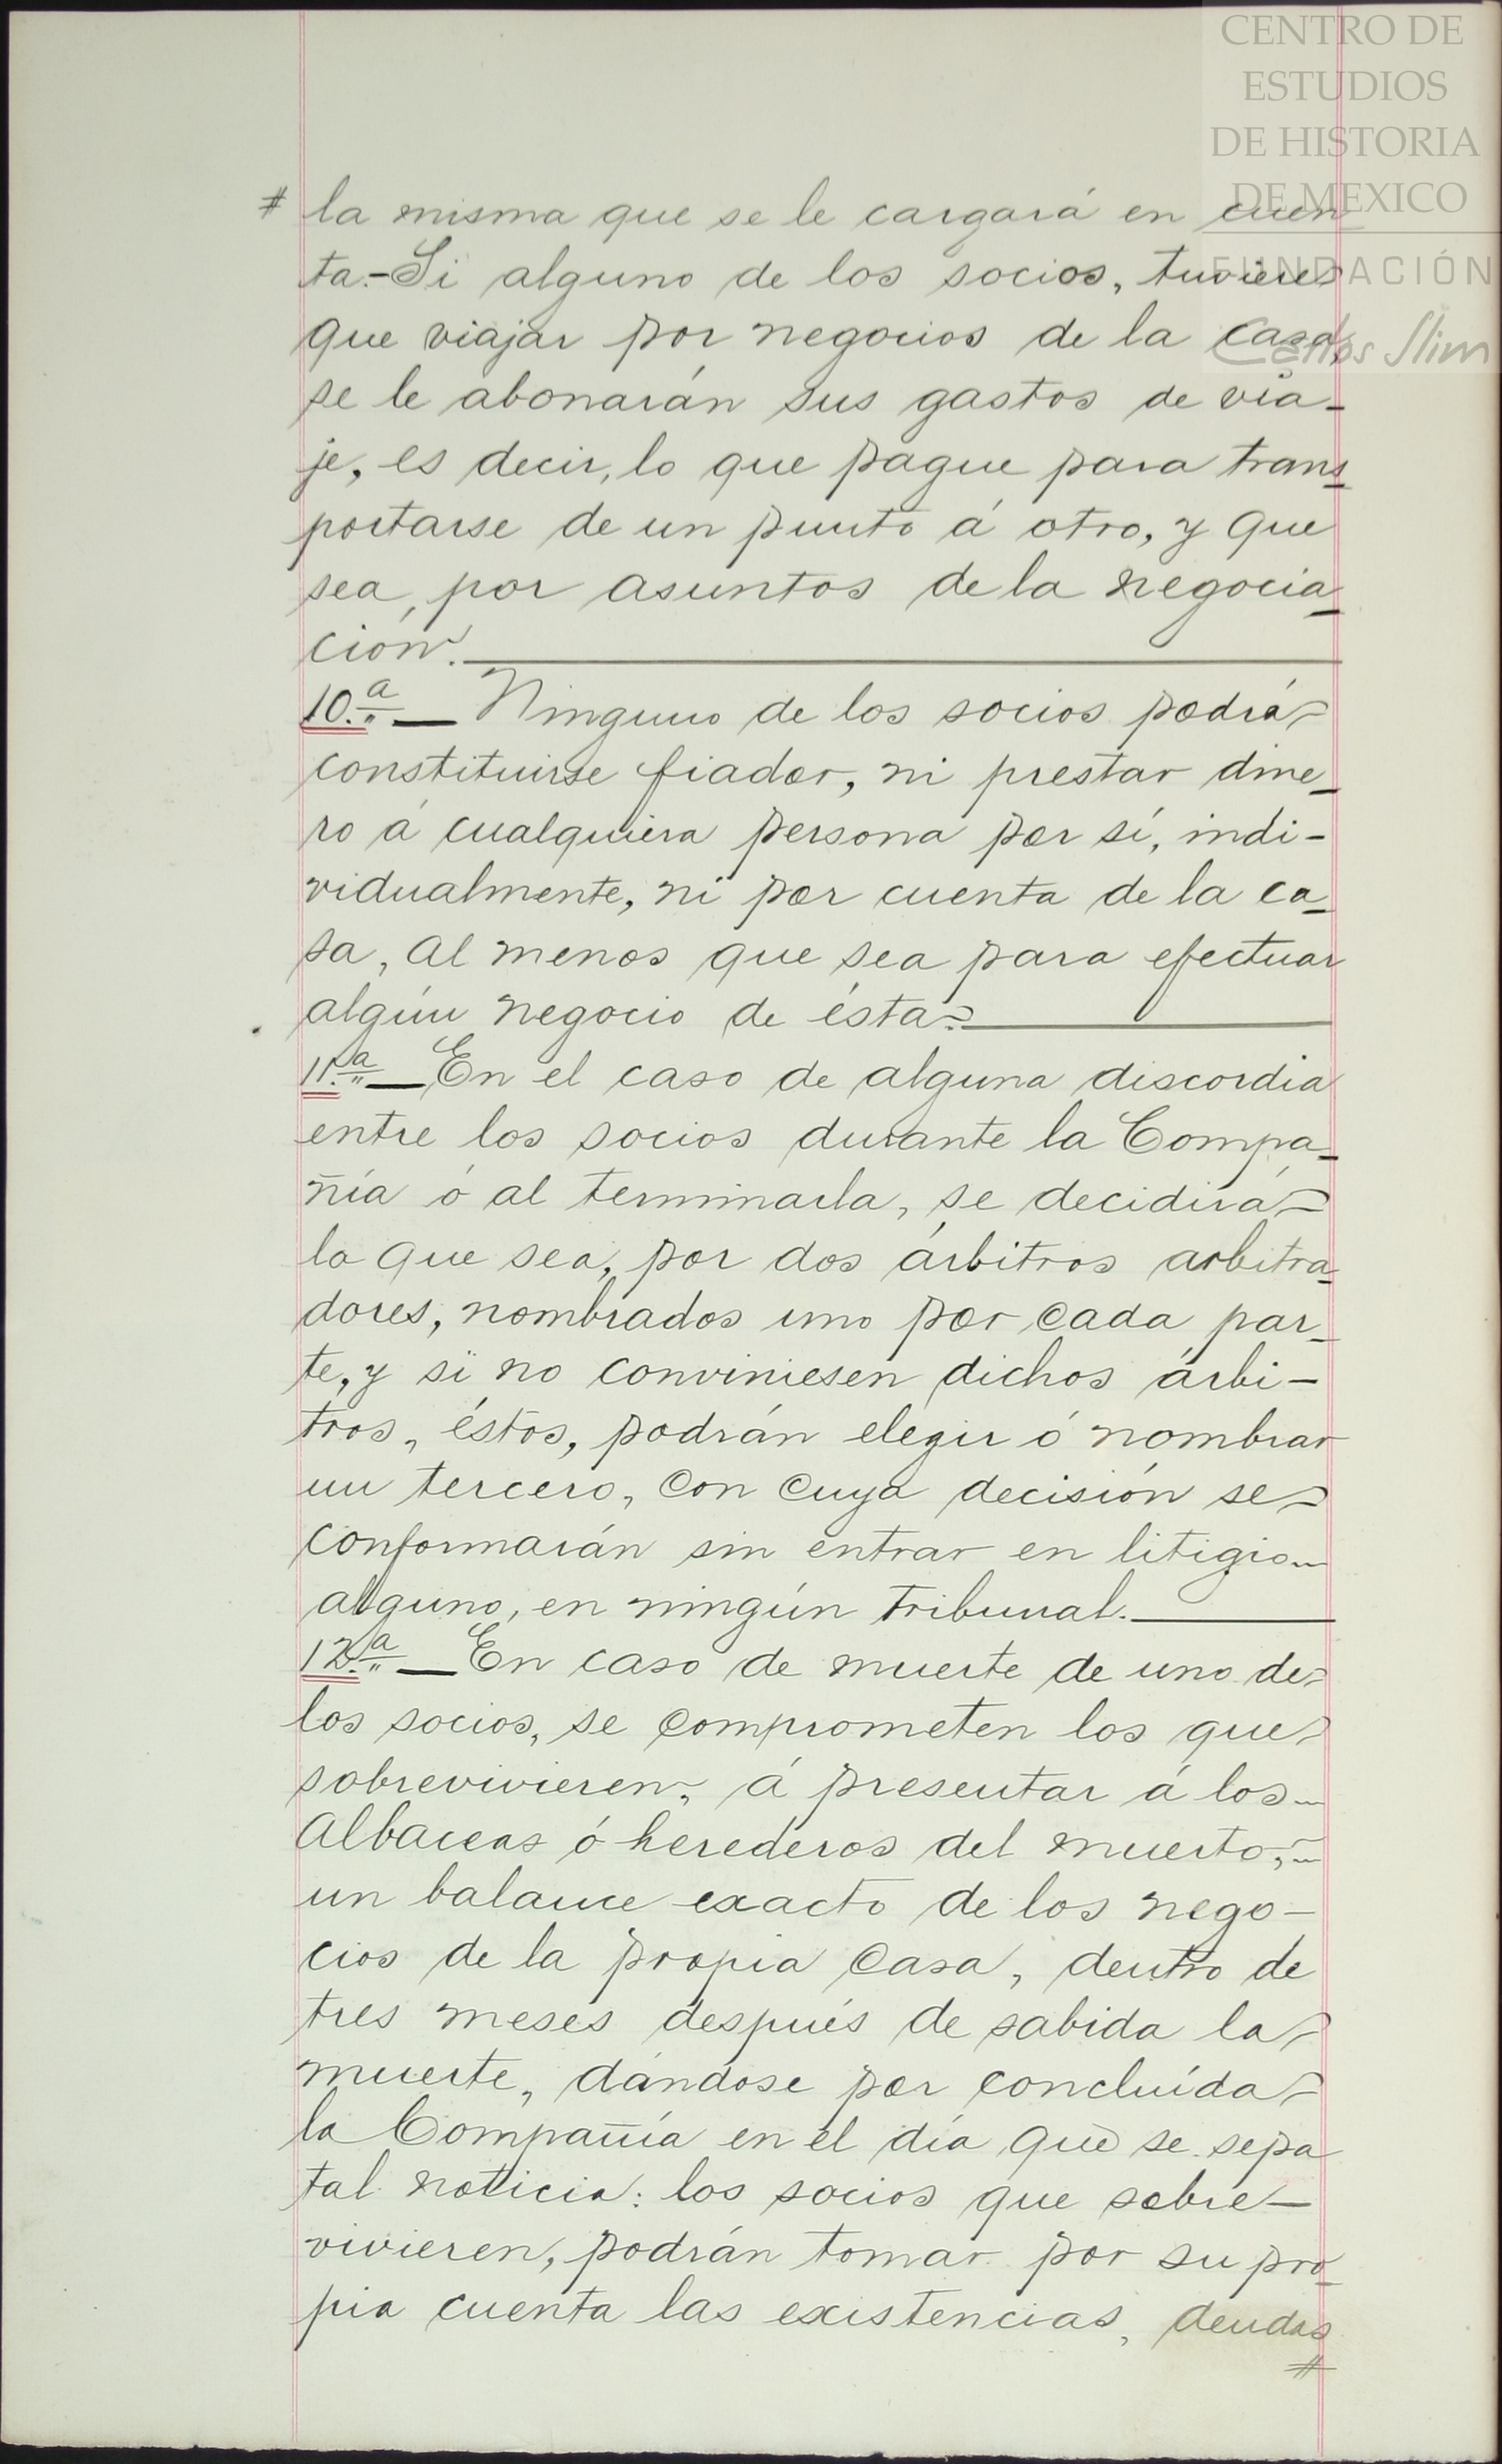 CENTRO DE
ESTUDIOS
DE HISTORIA
DE MEXICO
FUNDACIÓN
Carlos Slim
# la misma que se le cargará en cuen
ta.-Si alguno de los socios, tuviere
que viajar por negocios de la casa,
se le abonarán sus gastos de via-
je, es decir, lo que pague para trans-
portarse de un punto á otro, y que
sea, por asuntos de la negocia-
ción.
10.ª — Ninguno de los socios podrá
constituirse fiador, ni prestar dine-
ro á cualquiera persona por sí, indi-
vidualmente, ni por cuenta de la ca-
sa, al menos que sea para efectuar
algún negocio de ésta.
11.ª — En el caso de alguna discordia
entre los socios durante la Compa-
ñía ó al terminarla, se decidirá
lo que sea, por dos árbitros arbitra-
dores, nombrados uno por cada par-
te, y si no conviniesen dichos árbi-
tros, éstos, podrán elegir ó nombrar
un tercero, con cuya decisión se
conformarán sin entrar en litigio
alguno, en ningún tribunal.
12.ª — En caso de muerte de uno de
los socios, se comprometen los que
sobrevivieren, á presentar á los
albaceas ó herederos del muerto,
un balance exacto de los nego-
cios de la propia casa, dentro de
tres meses después de sabida la
muerte, dándose por concluída
la Compañía en el día que se sepa
tal noticia: los socios que sobre-
vivieren, podrán tomar por su pro-
pia cuenta las existencias, deudas
#